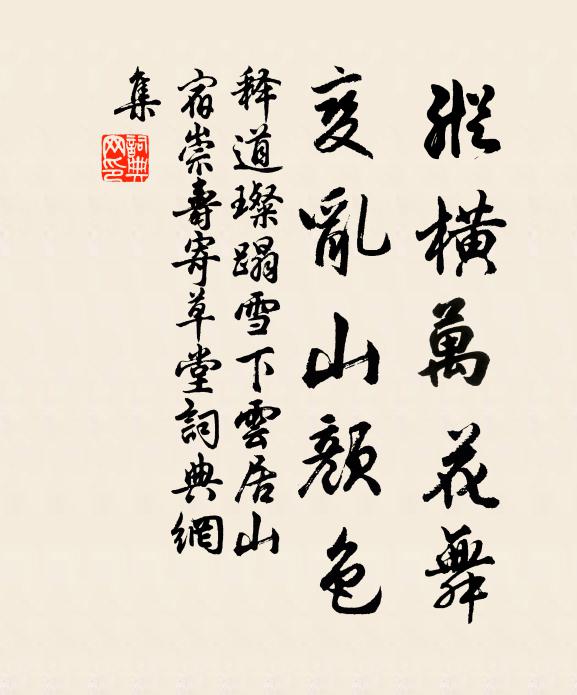 縱橫萬花舞
变亂山顏色
释道璨蹋雪下雲居山
宿崇壽寄草堂詞典網
集
詞典網印